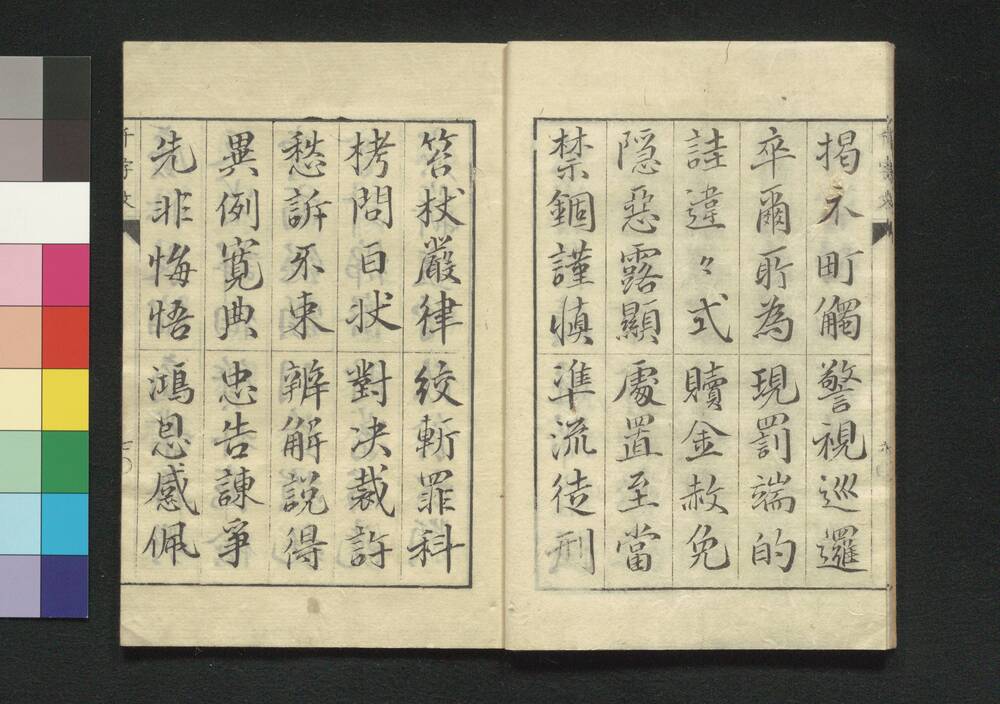 掲示町觸警視巡邏
卒爾所為現罰端的
詿違々式贖金赦免
隠惡露顯處置至當
禁錮謹慎準流徒刑
笞杖嚴律絞斬罪科
栲問白状對决裁許
愁訴不束辨解説得
異例寛典忠告諌爭
先非悔悟鴻恩感佩